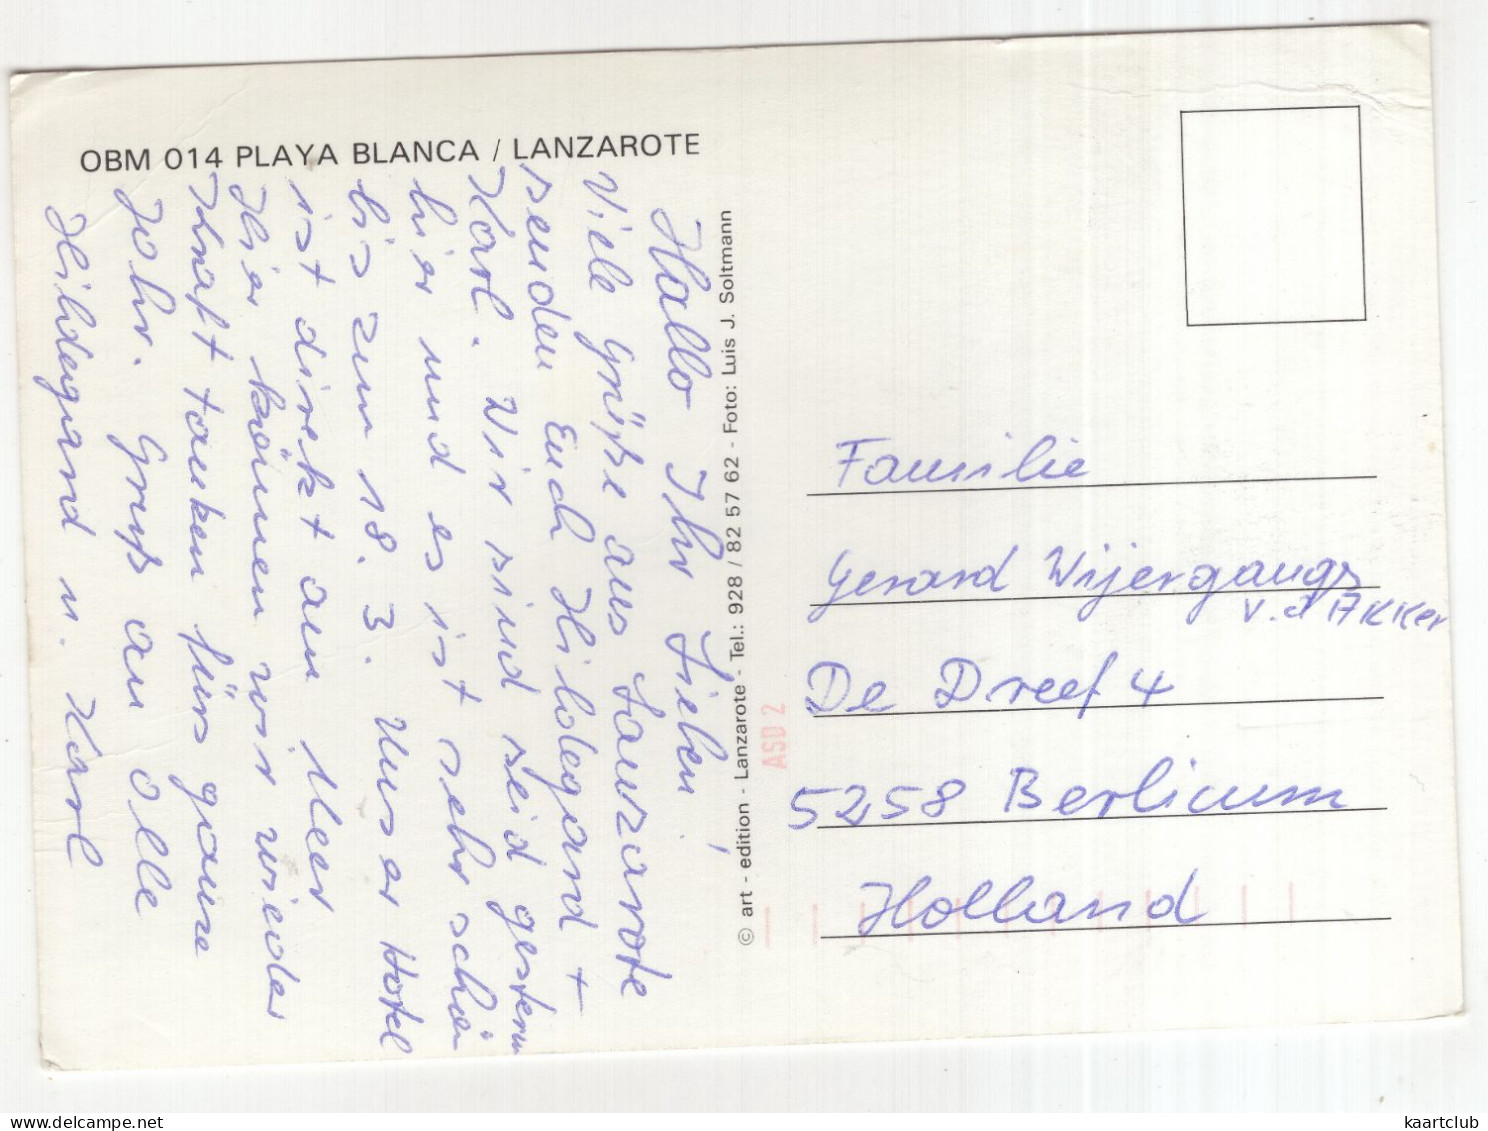 OBM 014 PLAYA BLANCA / LANZAROTE
Hallo Ihr Lieben!
Viele Grüße aus Lanzarote
senden Euch Hildegard +
Karl. Wir sind seid gestern
hier und es ist sehr schön
bis zum 18.3. Unser Hotel
ist direkt am Meer
Hier können wir wieder
Kraft tanken fürs ganze
Jahr. Gruß an alle
Hildegard u. Karl
© art - edition - Lanzarote - Tel.: 928 / 82 57 62 - Foto: Luis J. Soltmann
ASD 2
Familie
Gerard Wijergangs
v. d Akker
De Dreef 4
5258 Berlicum
Holland
delcampe.net
kaartclub